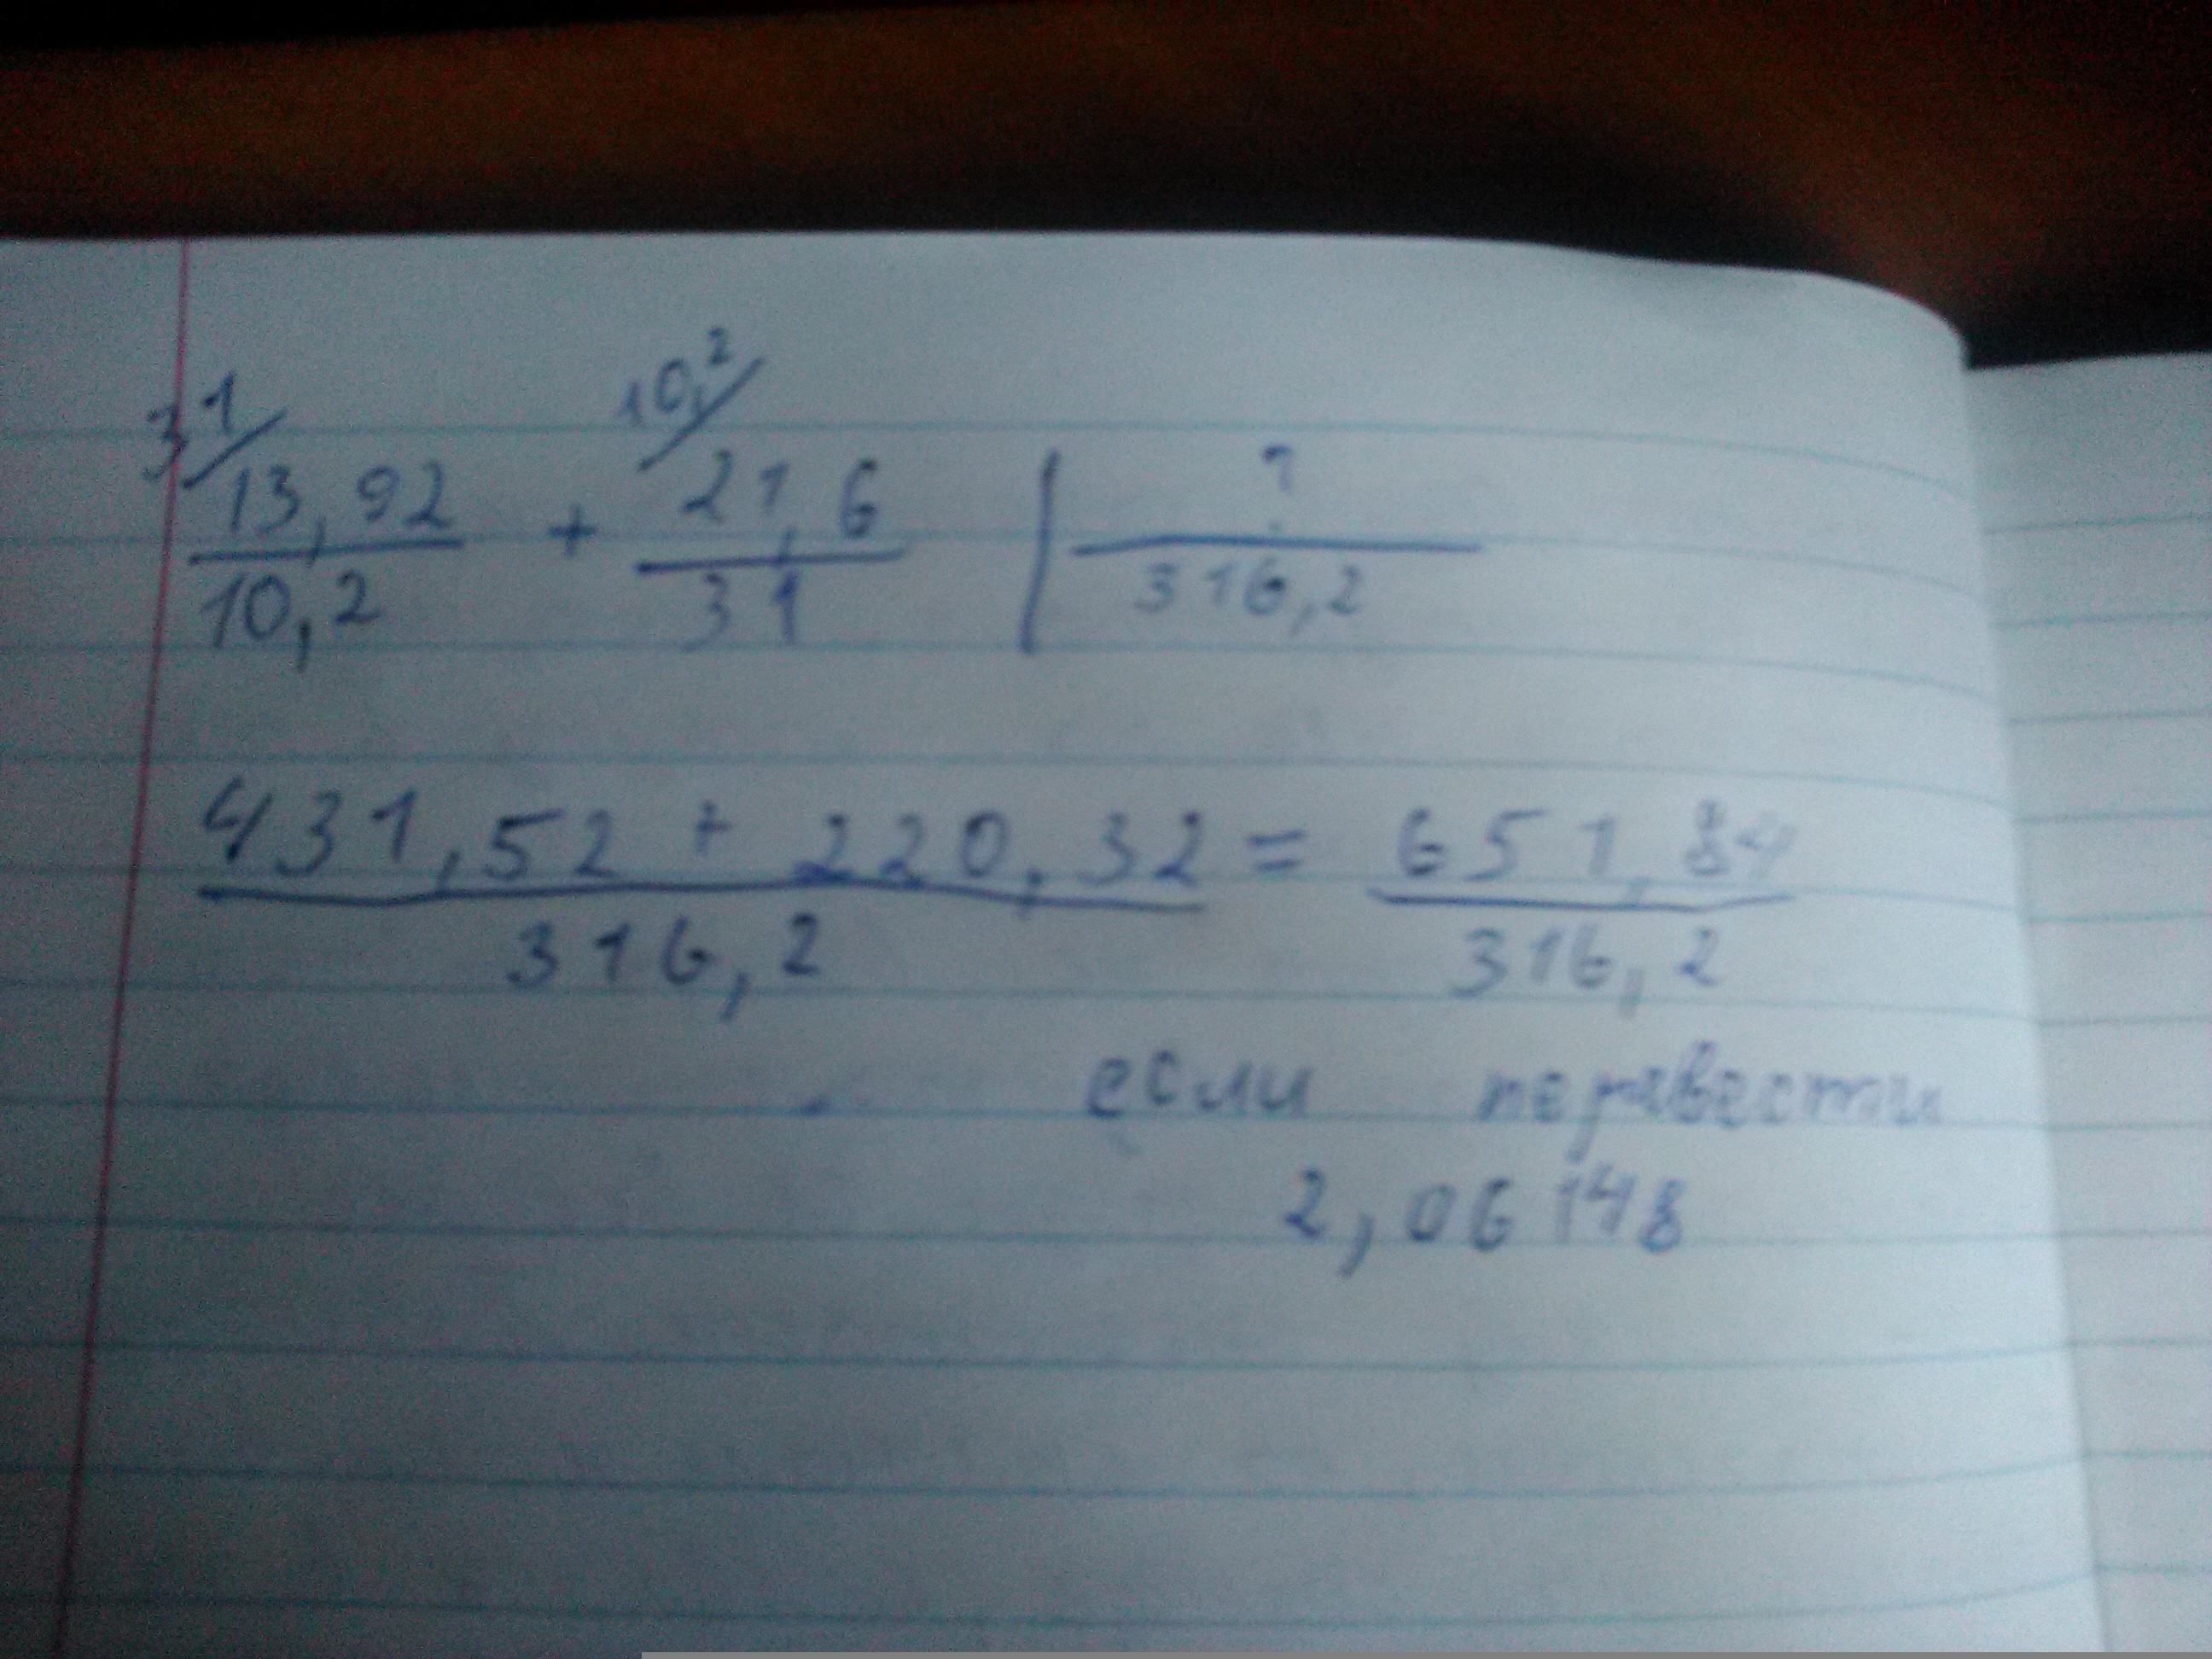 31/ 10,2/
13,92 + 21,6 | ?
10,2 31 316,2
431,52 + 220,32 = 651,84
316,2 316,2
если перевести
2,06148